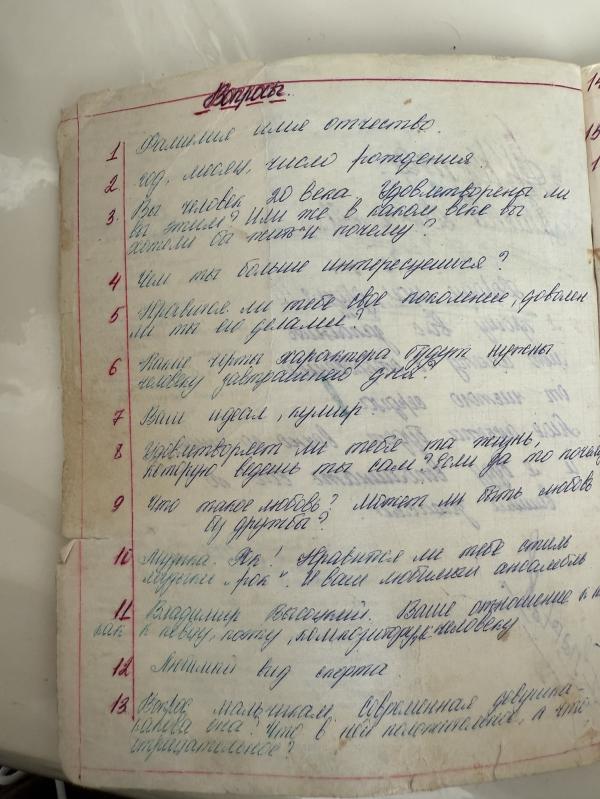 Вопросы.
1 Фамилия имя отчество.
2. Год, месяц, число рождения.
3. Вы человек 20 века. Удовлетворены ли
вы этим? Или же в каком веке вы
хотели бы жить и почему?
4 Чем ты больше интересуешься?
5 Нравится ли тебе свое поколение, доволен
ли ты его делами?
6 Какие черты характера будут нужны
человеку завтрашнего дня?
7 Ваш идеал, кумир
8 Удовлетворяет ли тебя та жизнь,
которую видешь ты сам? Если да то почему
9 Что такое любовь? Может ли быть любовь
без дружбы?
10 Музыка. Рок! Нравится ли тебе стиль
музыки "рок". И ваш любимый ансамбль
11 Владимир Высоцкий. Ваше отношение к н
как к певцу, поэту, композитору, человеку
12 Любимый вид спорта
13 Вопрос мальчикам. Современная девушка-
какова она? Что в ней положительное, а что
отрицательное?
14
15
1